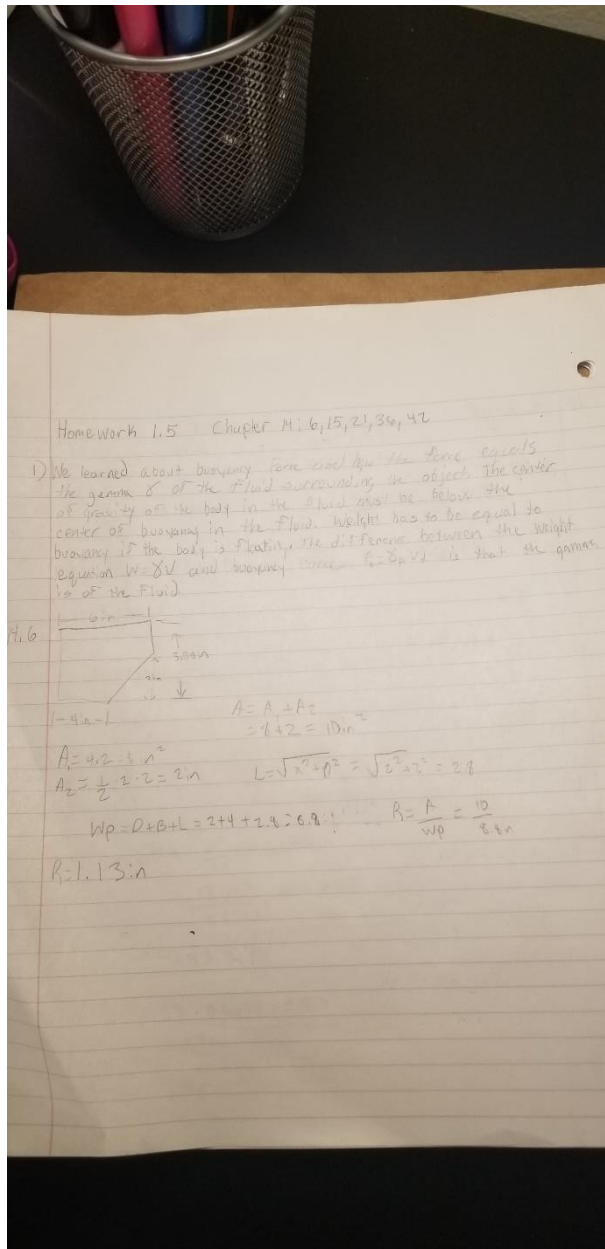 Homework 1.5 Chapter 14: 6, 15, 21, 36, 42
1) We learned about buoyancy force and how the force equals
the gamma γ of the fluid surrounding the object. The center
of gravity of the body in the fluid must be below the
center of buoyancy in the fluid. Weight has to be equal to
buoyancy if the body is floating. The difference between the weight
equation W=γV and buoyancy is that the gamma
is of the Fluid.
14.6
6in
2in
4in
A = A1 + A2
= 8+2 = 10in²
A1 = 4·2 = 8 in²
A2 = 1/2 · 2 · 2 = 2in
L = √x²+D² = √2²+2² = 2.8
Wp = D+B+L = 2+4+2.8 = 8.8
R = A/Wp = 10/8.8in
R = 1.13in